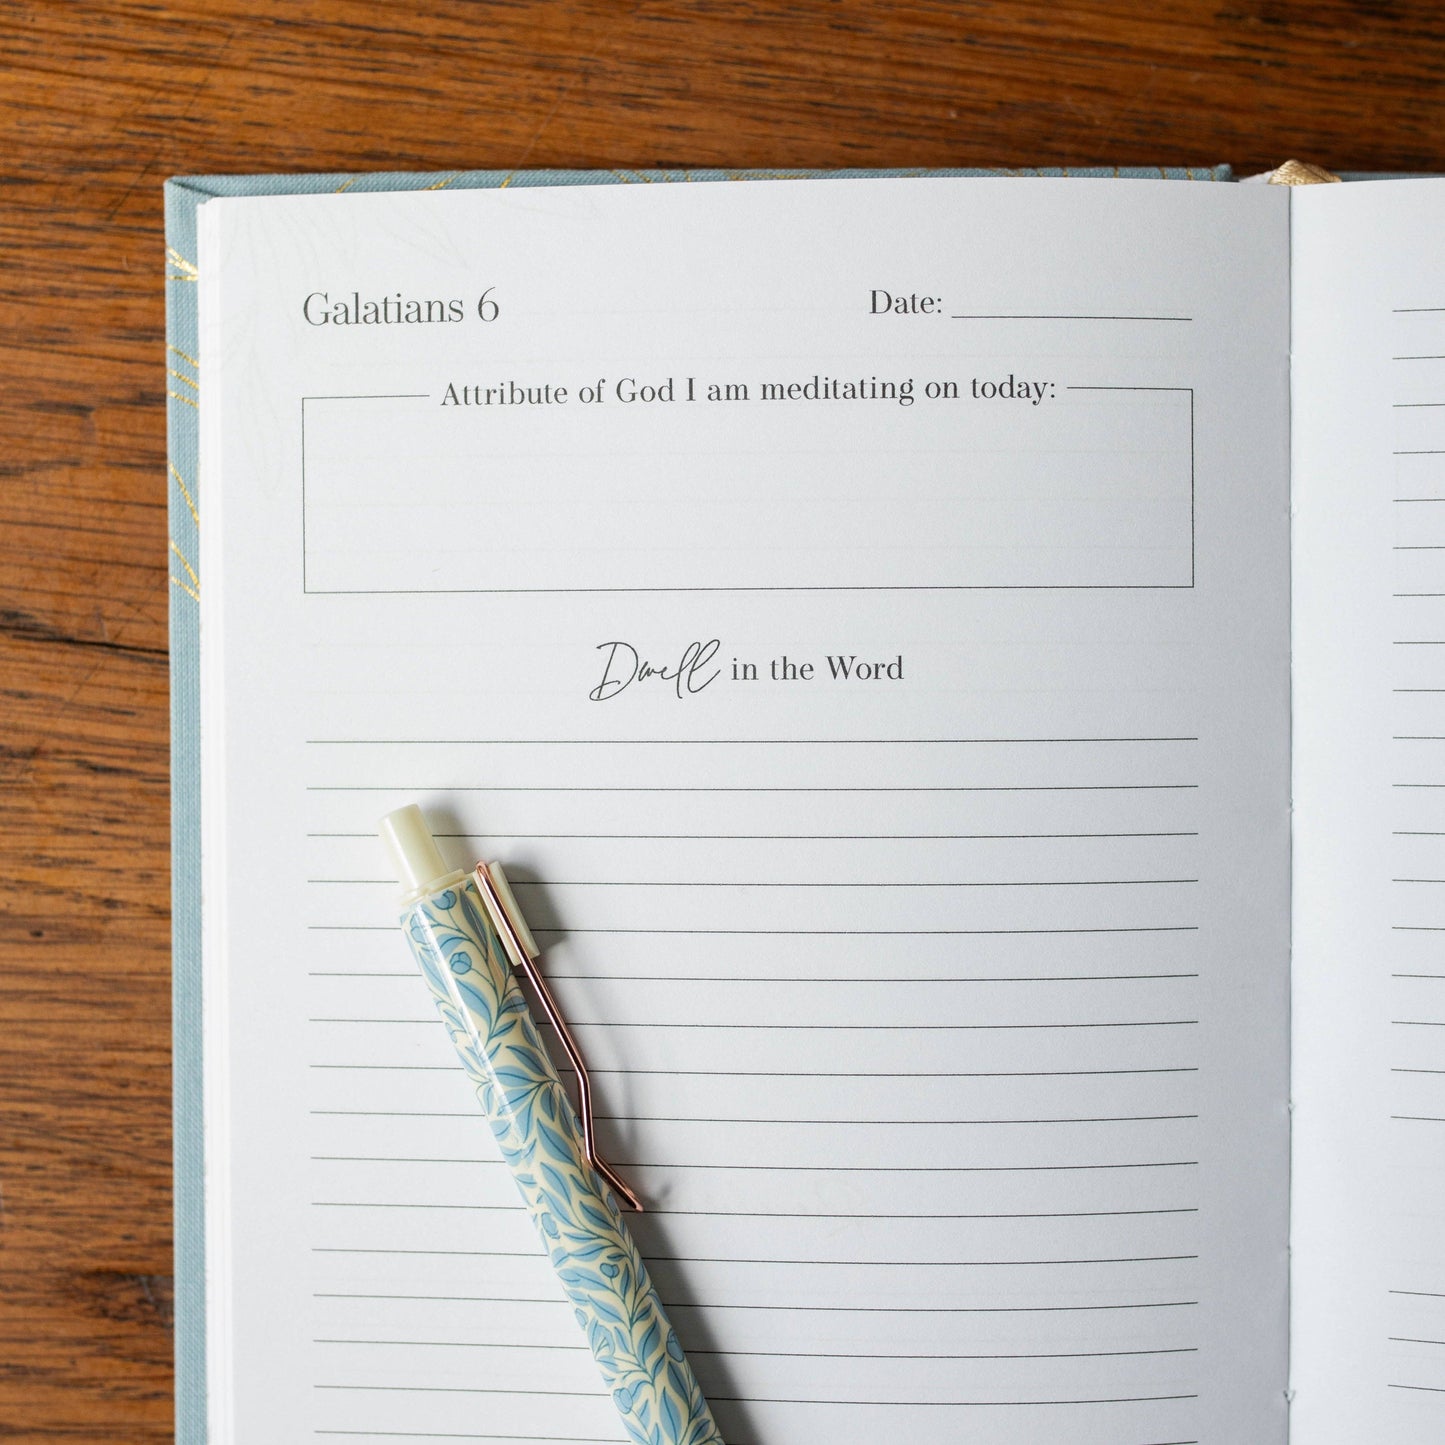 Galatians 6
Date:
Attribute of God I am meditating on today:
Dwell in the Word